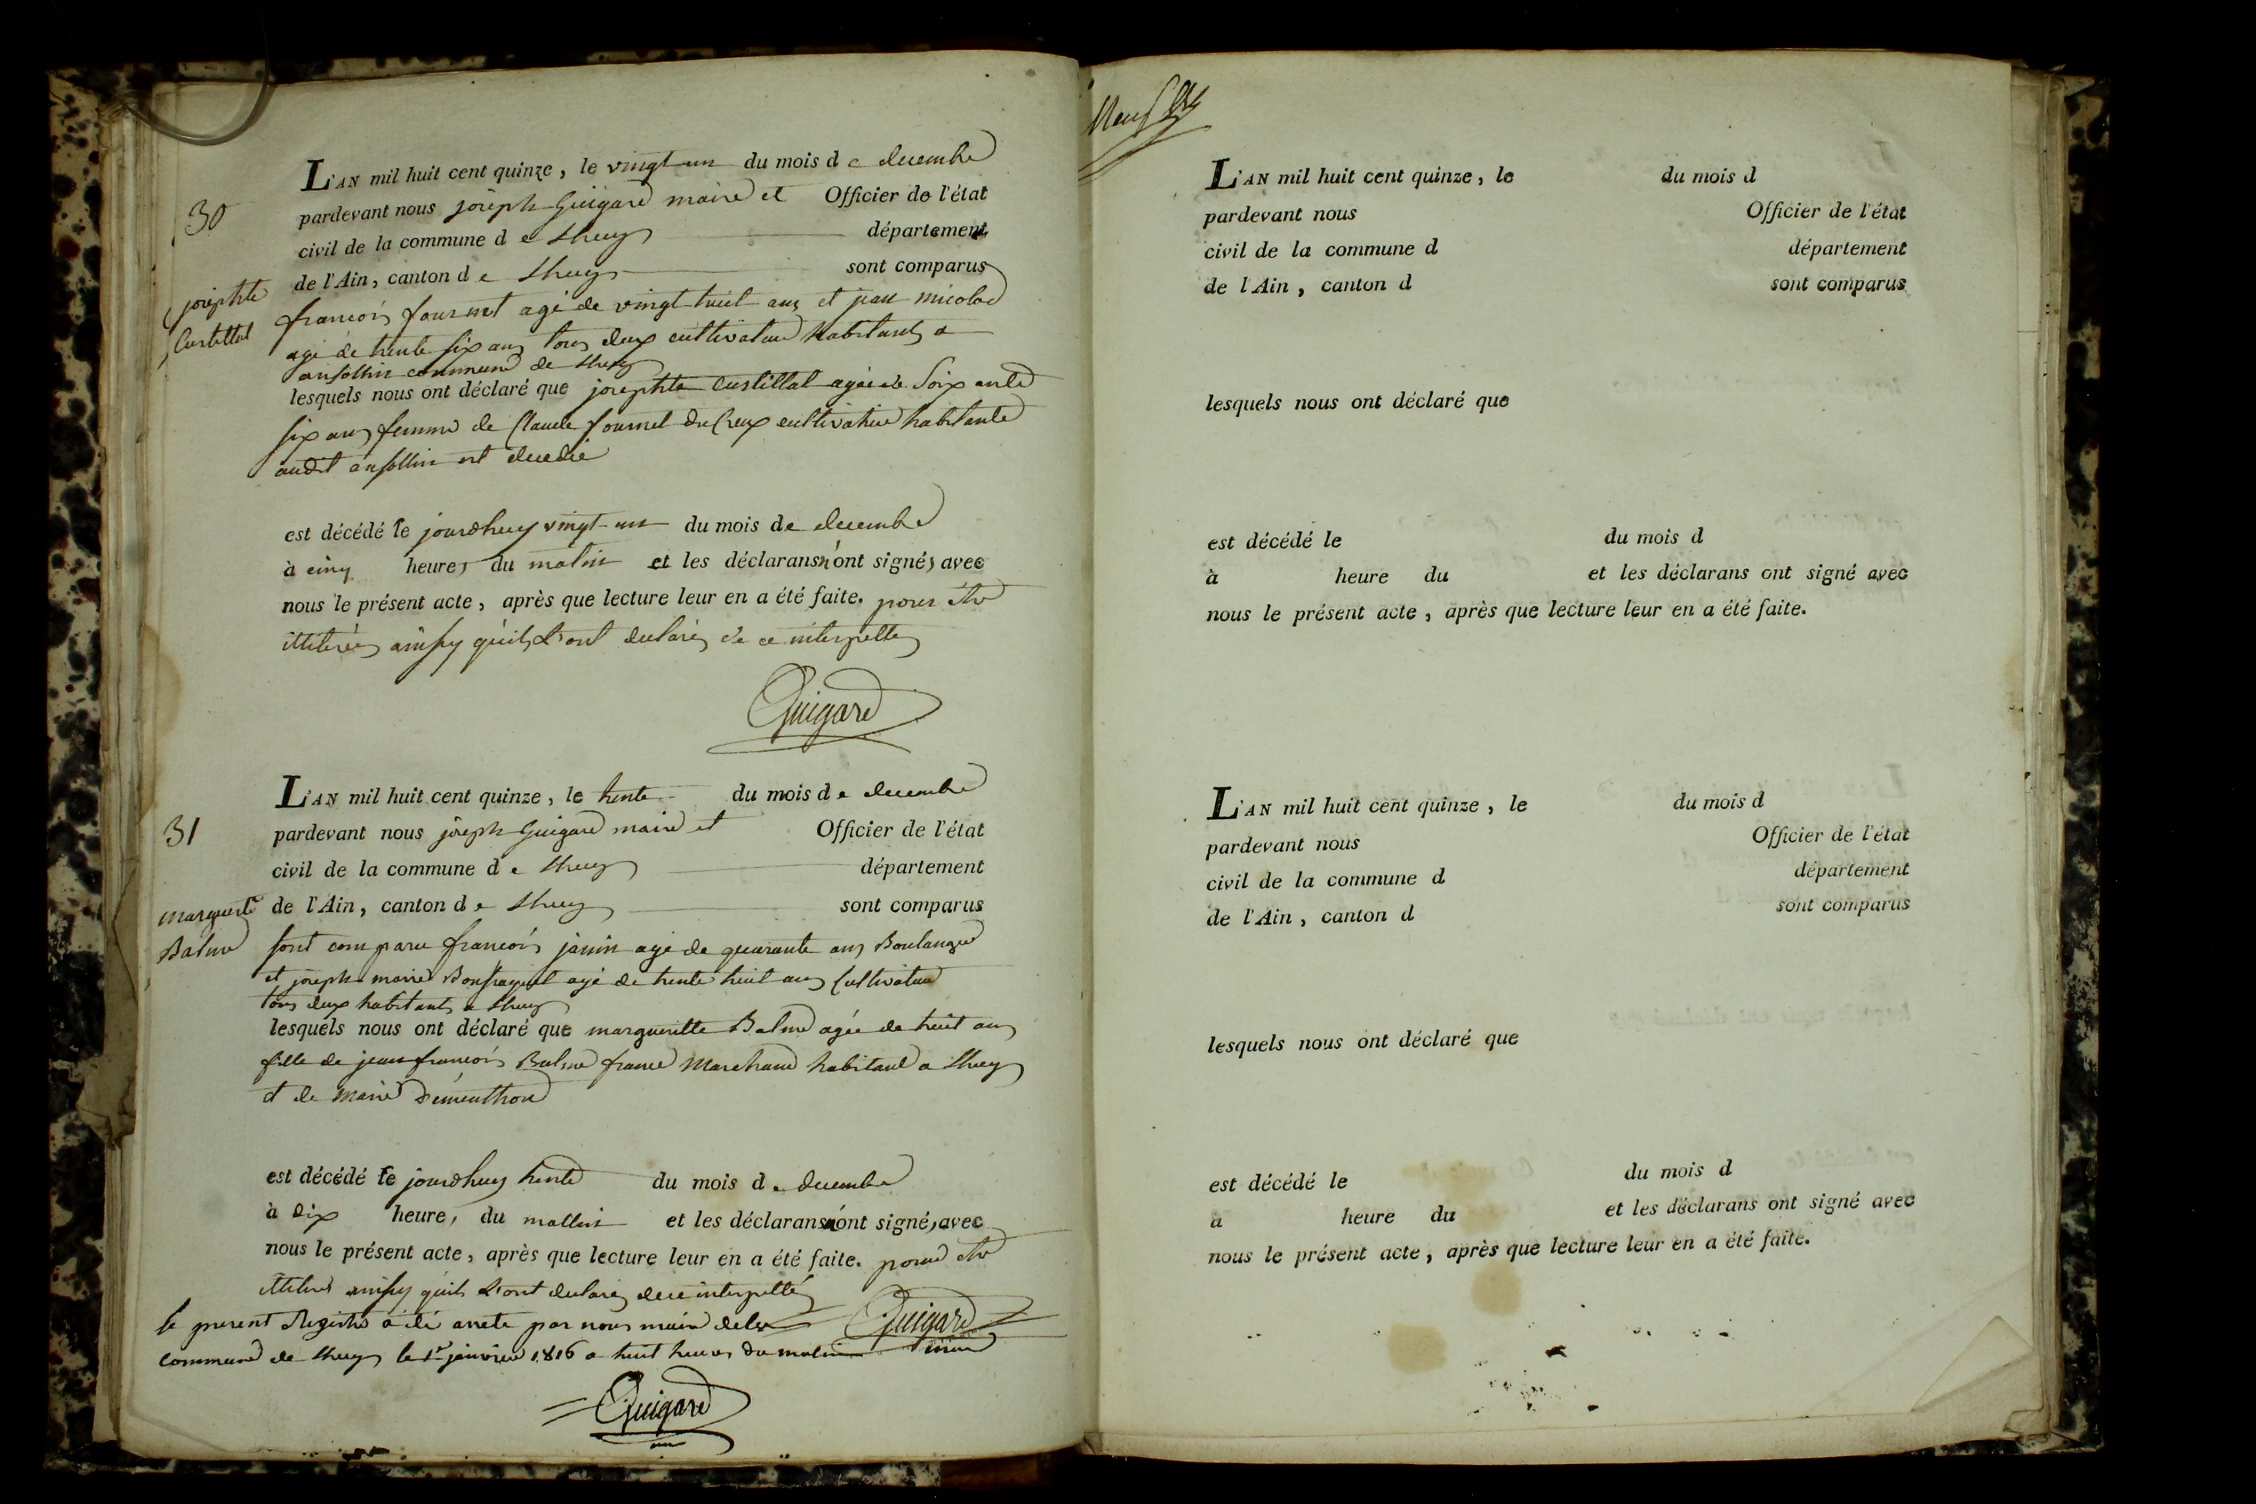 30
josephte
Custillat
L'AN mil huit cent quinze, le vingt un du mois de decembre
pardevant nous joseph Guigard maire et Officier de l'état
civil de la commune de thuy département
de l'Ain, canton de thuy sont comparus
francois fournet agé de vingt huit ans et jean nicolad
agé de trente six ans tous deux cultivateur habitants a
commune de thuy
lesquels nous ont déclaré que josephte Custillat agée de Soixante
six ans femme de Claude fournet cultivatrice habitante
audit est decedée
est décédé le jourdhuy vingt un du mois de decembre
à cinq heures du matin et les déclarans n'ont signés avec
nous le présent acte, après que lecture leur en a été faite. pour etre
illiterés ainsy qu'ils L'ont declarés de ce interpellés
Guigard
31
marguerite
Balme
L'AN mil huit cent quinze, le trente du mois de decembre
pardevant nous joseph Guigard maire et Officier de l'état
civil de la commune de thuy département
de l'Ain, canton de thuy sont comparus
sont comparu francois janin agé de quarante ans Boulanger
et joseph marie agé de trente huit ans Cultivateur
tous deux habitants a thuy
lesquels nous ont déclaré que margueritte Balme agée de huit ans
fille de jean francois Balme Marchand habitant a thuy
et de Marie
est décédé le jourdhuy trente du mois de decembre
à dix heures du mattin et les déclarans n'ont signés avec
nous le présent acte, après que lecture leur en a été faite. pour etre
illiterés ainsy qu'ils L'ont declarés de ce interpellés
le present Registre a été arreté par nous maire de la Guigard
commune de thuy le 1er janvier 1816 a huit heures du matin maire
Guigard
Neuf
L'AN mil huit cent quinze, le du mois d
pardevant nous Officier de l'état
civil de la commune d département
de l'Ain, canton d sont comparus
lesquels nous ont déclaré que
est décédé le du mois d
à heure du et les déclarans ont signé avec
nous le présent acte, après que lecture leur en a été faite.
L'AN mil huit cent quinze, le du mois d
pardevant nous Officier de l'état
civil de la commune d département
de l'Ain, canton d sont comparus
lesquels nous ont déclaré que
est décédé le du mois d
à heure du et les déclarans ont signé avec
nous le présent acte, après que lecture leur en a été faite.